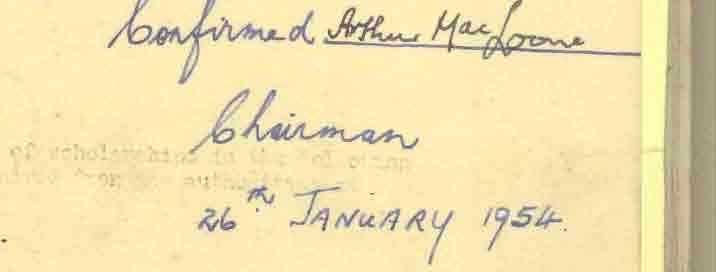 Confirmed Arthur MacLoone
Chairman
of scholarships in the
authorit
26th JANUARY 1954.